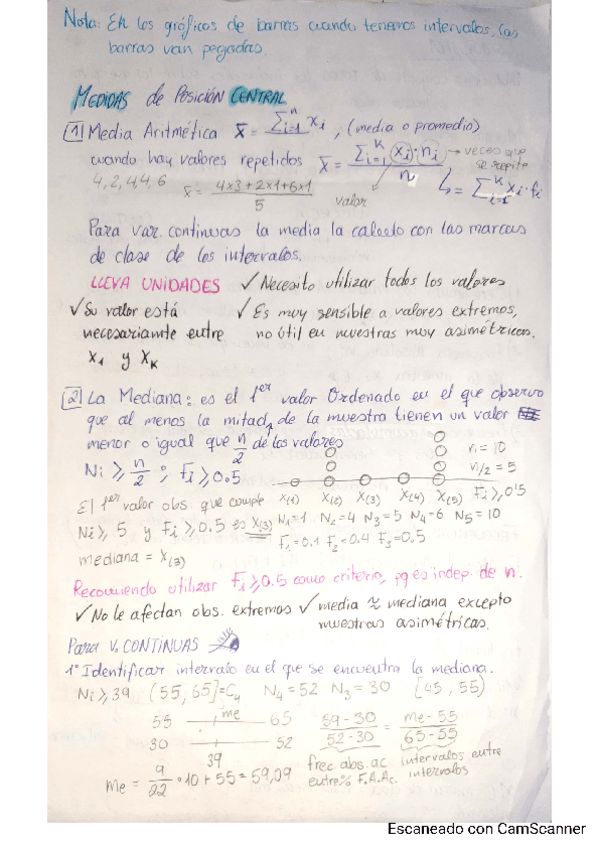 Nota: En los gráficos de barras cuando tenemos intervalos, las
barras van pegadas.
MEDIDAS de POSICIÓN CENTRAL
1 Media Aritmética x̄ = Σⁿᵢ₌₁ xᵢ, (media o promedio)
cuando hay valores repetidos x̄ = Σᵏᵢ₌₁ xᵢ·nᵢ / n → veces que se repite
4,2,4,4,6 x̄ = 4x3+2x1+6x1 / 5 valor ↳ = Σᵏᵢ₌₁ xᵢ·fᵢ
Para var. continuas la media la calculo con las marcas
de clase de los intervalos.
LLEVA UNIDADES ✓ Necesito utilizar todos los valores
✓ Su valor está ✓ Es muy sensible a valores extremos,
necesariamente entre no útil en muestras muy asimétricas.
x₁ y xₖ
2 La Mediana: es el 1er valor Ordenado en el que observo
que al menos la mitad de la muestra tienen un valor
menor o igual que n/2 de los valores
Ni ≥ n/2 ; Fi ≥ 0.5 n = 10
n/2 = 5
x(1) x(2) x(3) x(4) x(5) Fi ≥ 0'5
El 1er valor obs. que cumple
Ni ≥ 5 y Fi ≥ 0.5 es x(3) N₁=1 N₂=4 N₃=5 N₄=6 N₅=10
F₁=0.1 F₂=0.4 F₃=0,5
mediana = x(3)
Recomiendo utilizar Fi ≥ 0.5 como criterio, pq es indep. de n.
✓ No le afectan obs. extremos ✓ media ≈ mediana excepto
muestras asimétricas.
Para V. CONTINUAS
1º Identificar intervalo en el que se encuentra la mediana.
Ni ≥ 39 (55, 65] = C₄ N₄ = 52 N₃ = 30 [45, 55)
55 me 65 39 - 30 / 52 - 30 = me - 55 / 65 - 55
30 39 52
frec abs. ac entre F.A.Ac. intervalos entre intervalos
me = 9/22 · 10 + 55 = 59,09
Escaneado con CamScanner